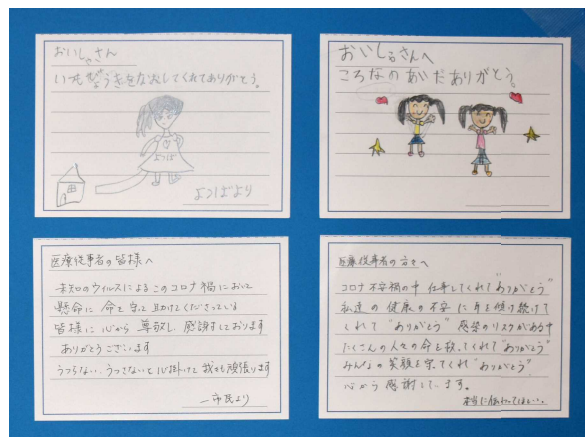 おいしゃさん
いつもびょうきをなおしてくれてありがとう。
よつば
よつばより
おいしゃさんへ
ころなのあいだありがとう。
医療従事者の皆様へ
未知のウィルスによるこのコロナ禍において
懸命に命を守って助けてくださっている
皆様に心から尊敬し感謝しております
ありがとうございます
うつらない、うつさないと心掛けて我々も頑張ります
一市民より
医療従事者の方々へ
コロナ不安禍の中仕事してくれて"ありがとう"
私達の健康の不安に耳を傾け続けて
くれて"ありがとう"感染のリスクがある中
たくさんの人々の命を救ってくれて"ありがとう"
みんなの笑顔を守ってくれ"ありがとう"
心から感謝しています。
本当に伝わってほしい。